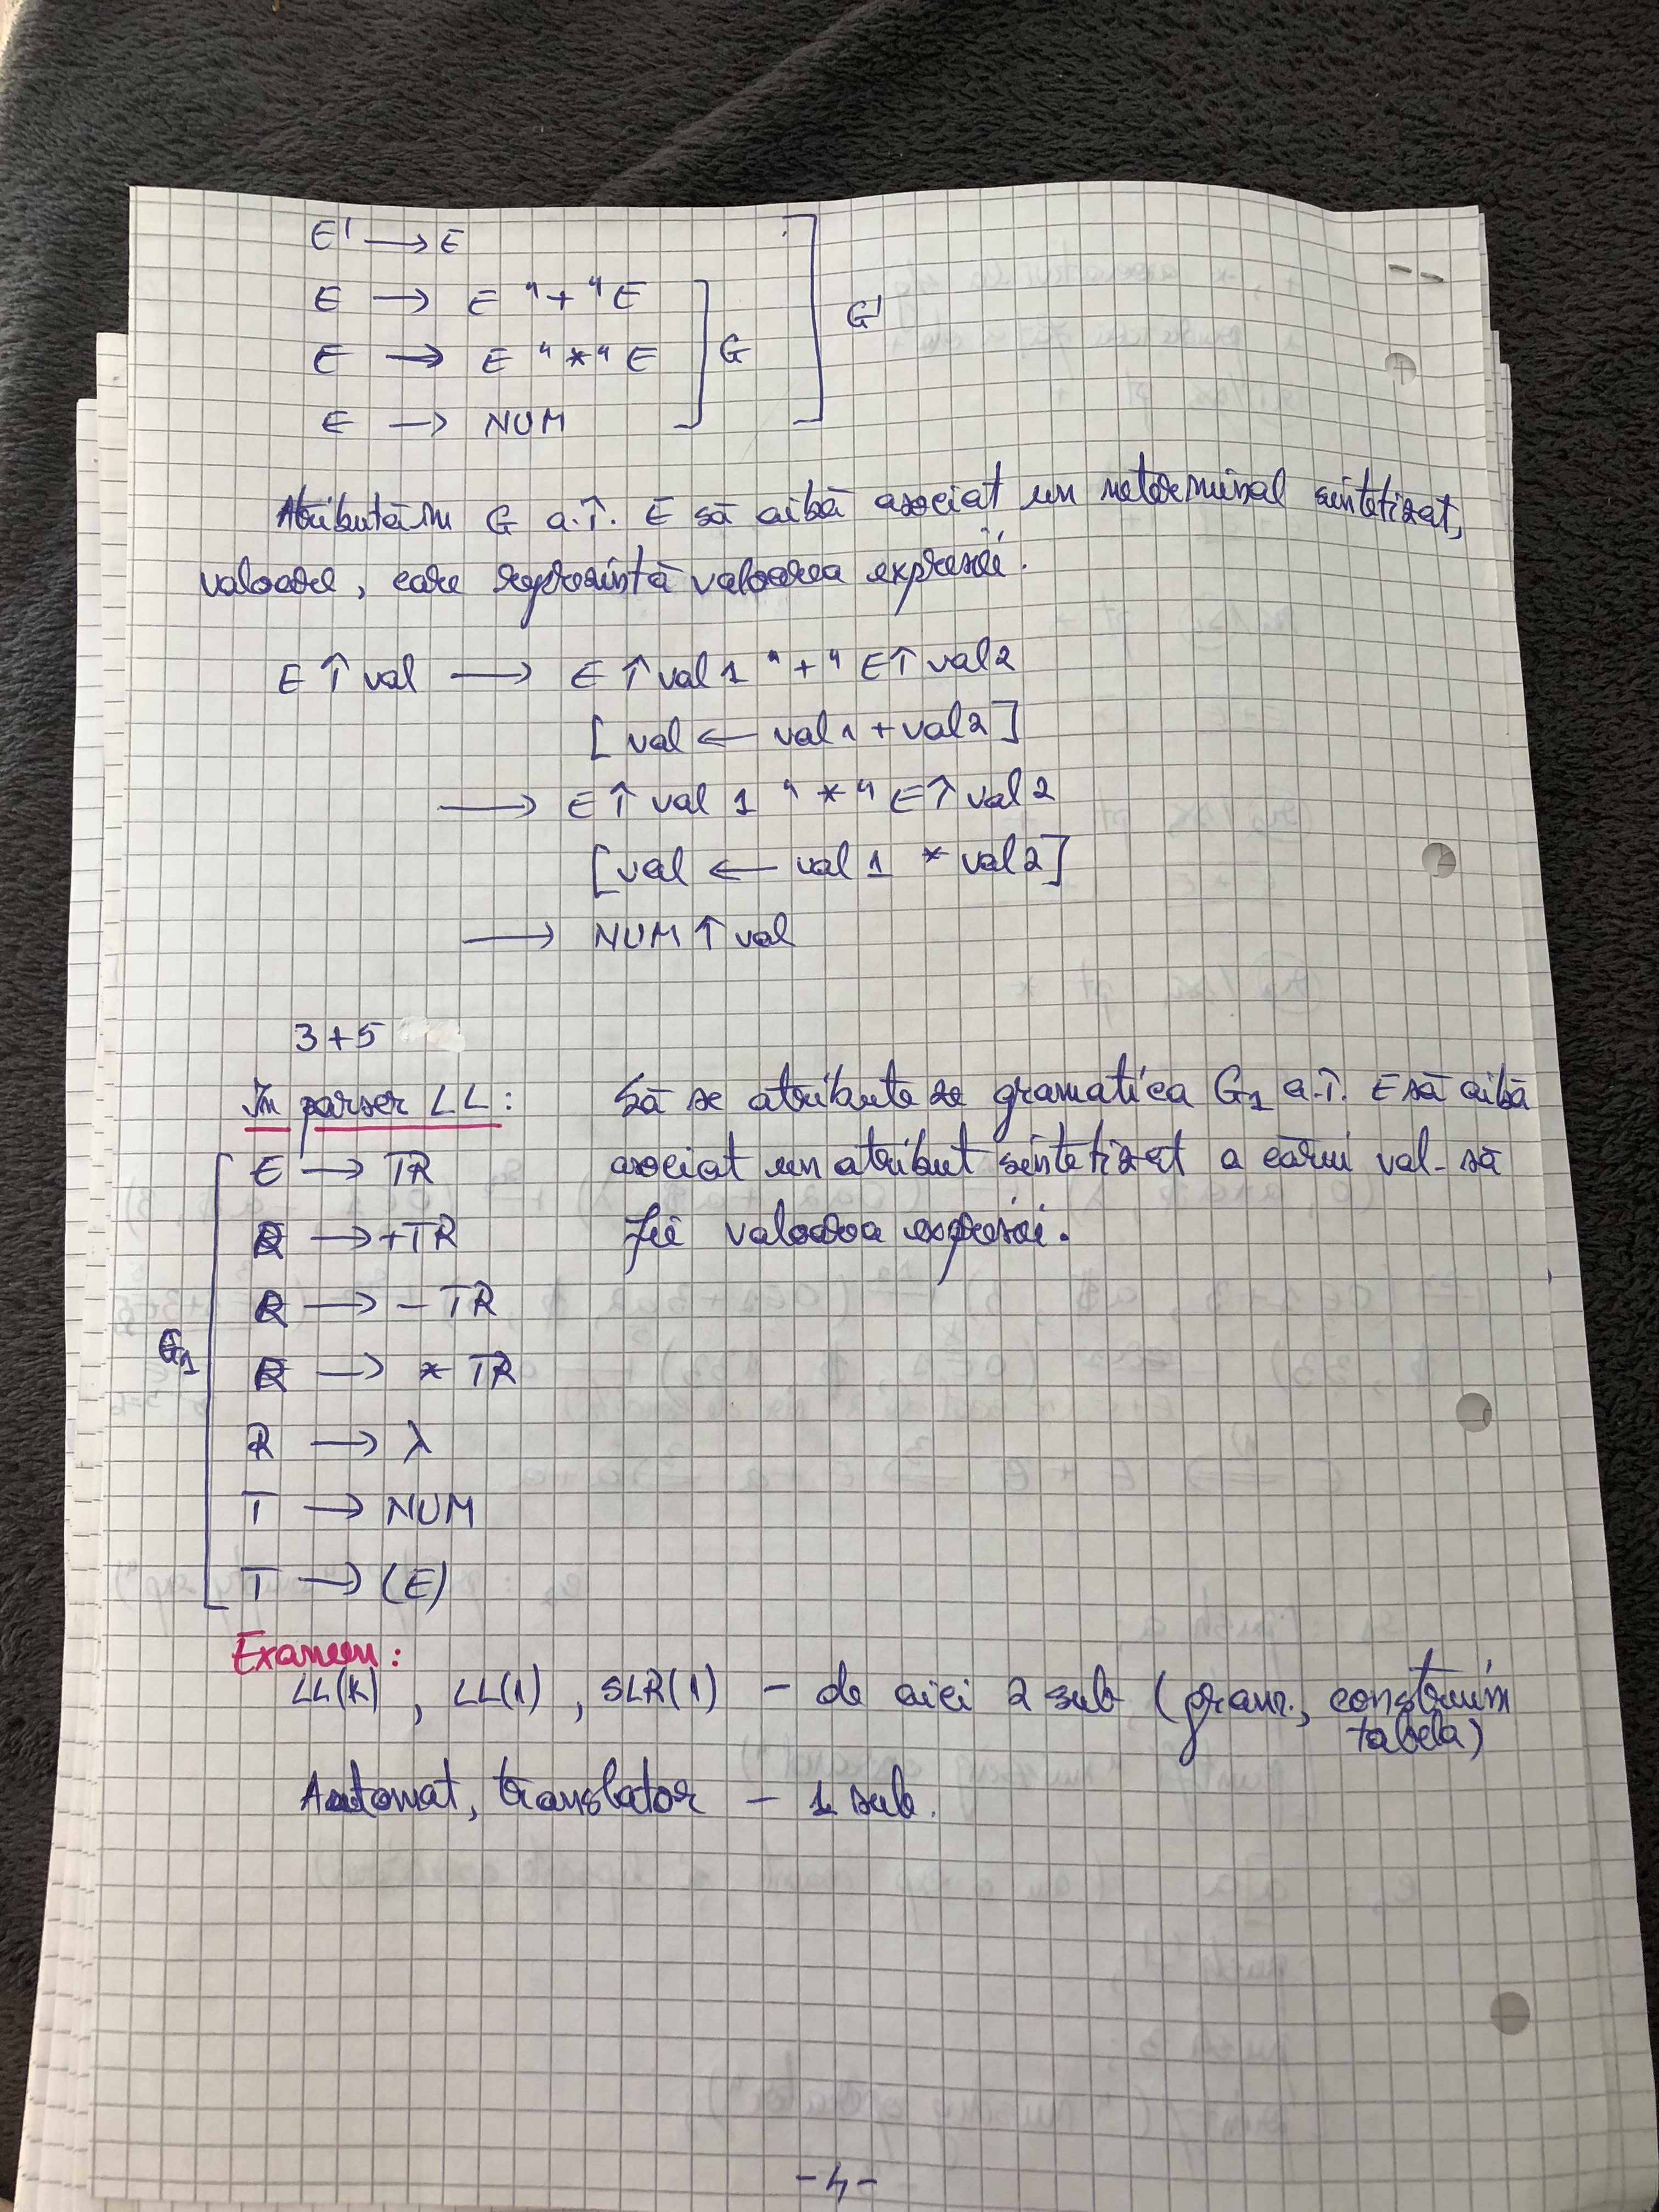 E' → E
E → E "+" E
E → E "*" E
E → NUM
G
G'
Atribută m G a.î. E să aibă asociat un neterminal sintetizat,
valoare, care reprezintă valoarea expresiei.
E↑val → E↑val1 "+" E↑val2
[val ← val1 + val2]
→ E↑val1 "*" E↑val2
[val ← val1 * val2]
→ NUM↑val
3+5
În parser LL: Să se atribute ze gramatica G1 a.î. E să aibă
asociat un atribut sintetizat a cărui val. să
fie valoarea expresiei.
G1
E → TR
R → +TR
R → -TR
R → *TR
R → λ
T → NUM
T → (E)
Examen:
LL(k), LL(1), SLR(1) - de aici 2 sub (gram., construim
tabela)
Automat, translator - 1 sub.
-4-